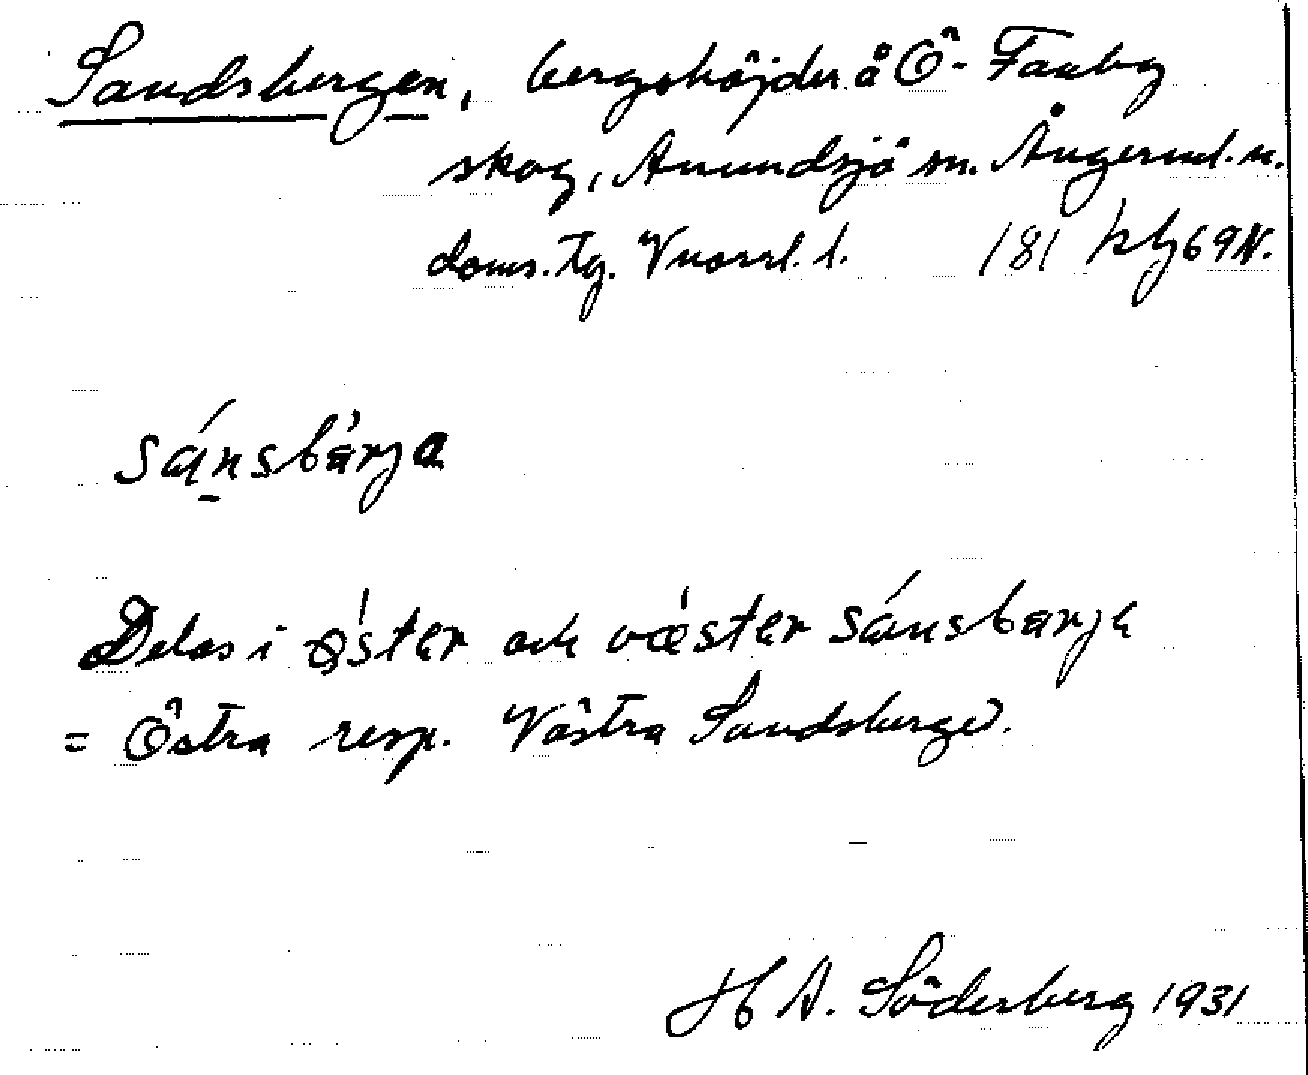 Sandsbergen, bergshöjder å Ö-Fanby
skog, Anundsjö sn. Ångerml. n.
doms. tg. Vnorrl. l. 181 kbl 69 N.
sánsbärja
Delas i öster och væster sánsbärja
= Östra resp. Västra Sandsberget.
H A. Söderberg 1931